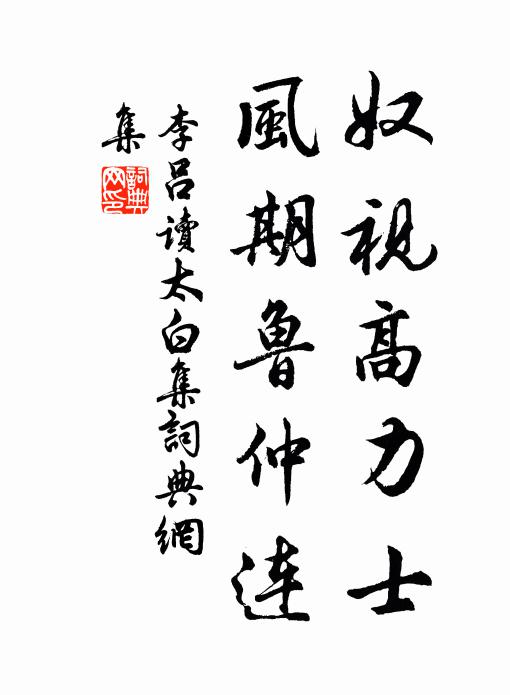 奴視高力士
風期魯仲連
李吕讀太白集詞典網
集
詞典
网印